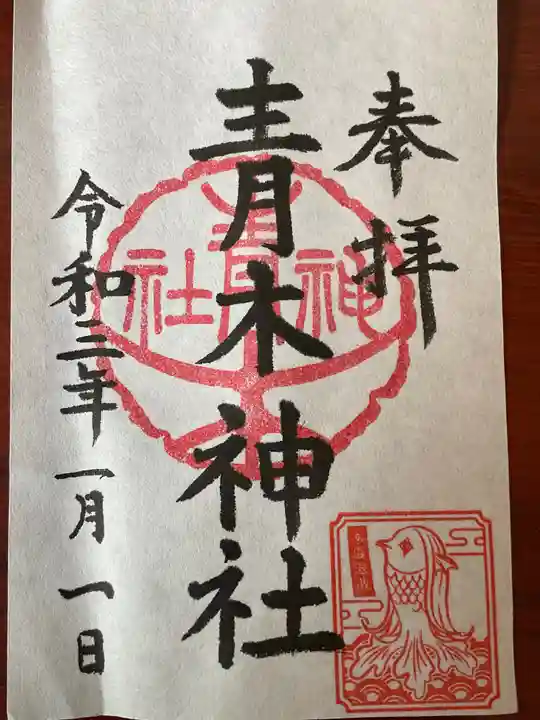 奉拝
青木神社
令和三年一月一日
神青社